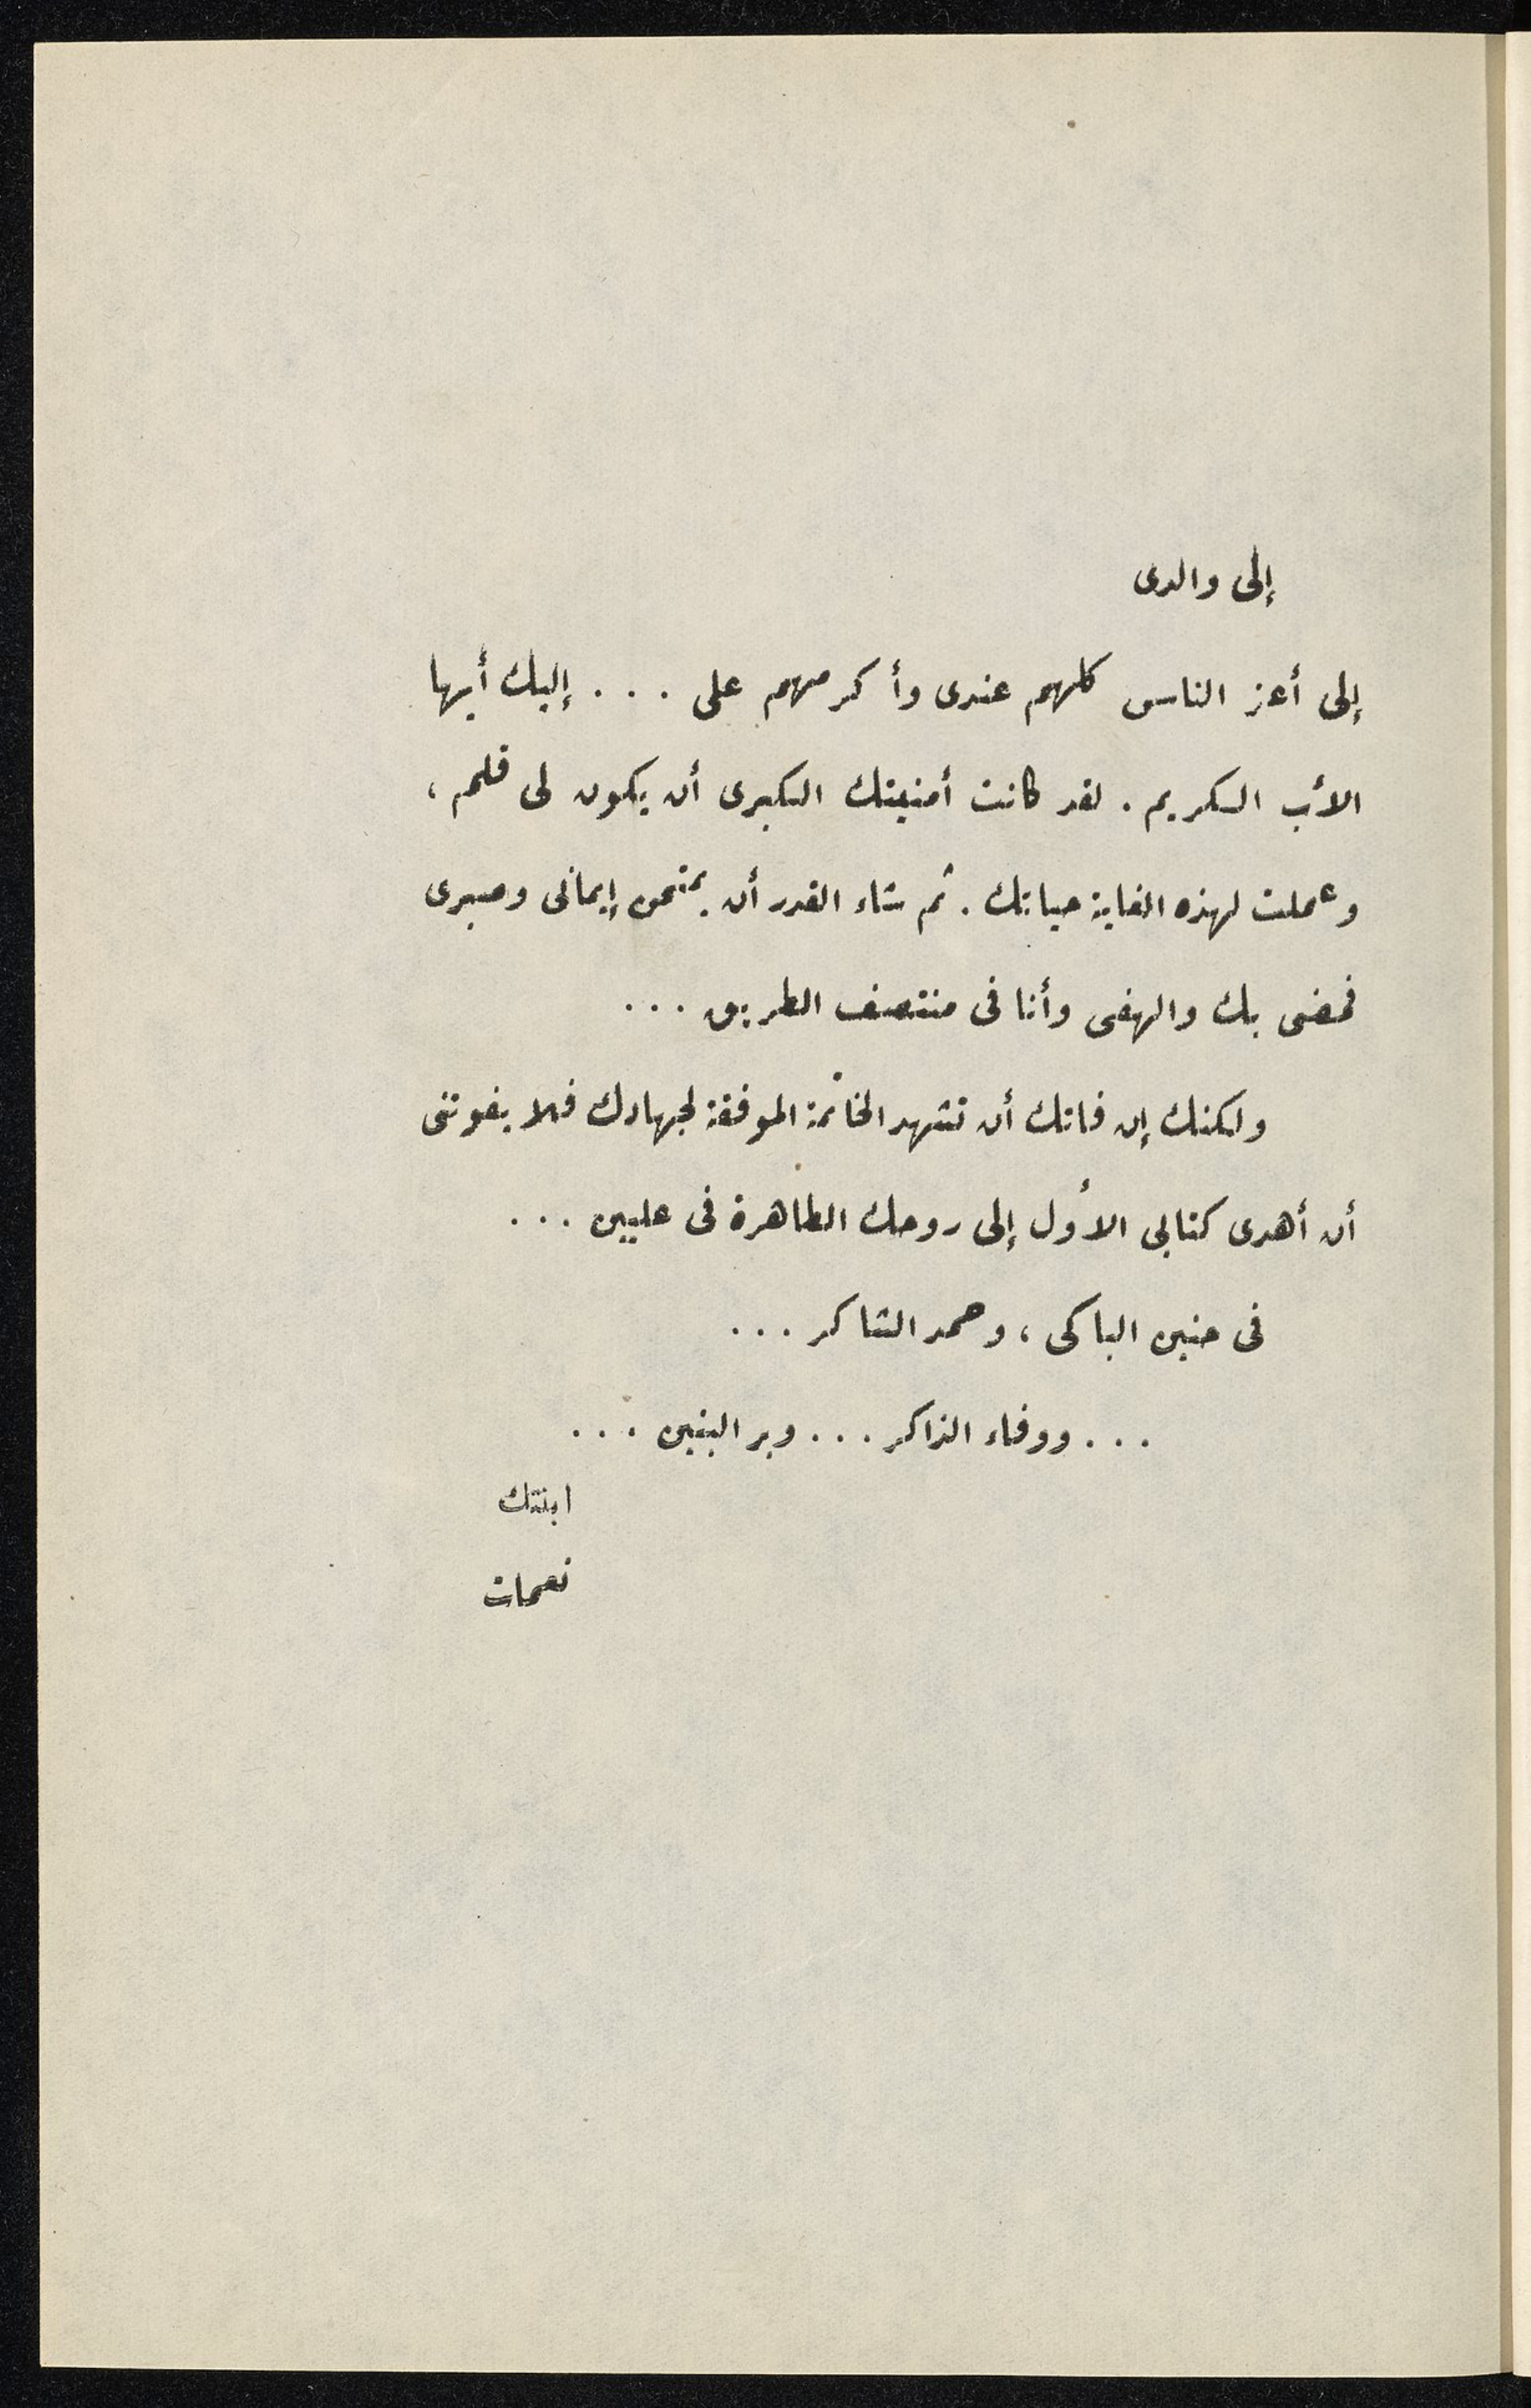 إلى والدى
إلى أعز الناس كلهم عندى وأكرمهم على . . . إليك أيها
الأب الكريم . لقد كانت أمنيتك الكبرى أن يكون لى قلم ،
وعملت لهذه الغاية حياتك . ثم شاء القدر أن يمتحن إيمانى وصبرى
فمضى بك والهفى وأنا فى منتصف الطريق . . .
ولكنك إن فاتك أن تشهد الخاتمة الموفقة لجهادك فلا يفوتنى
أن أهدى كتابى الأول إلى روحك الطاهرة فى عليين . . .
فى حنين الباكى ، وحمد الشاكر . . .
. . . ووفاء الذاكر . . . وبر البنين . . .
ابنتك
نعمات